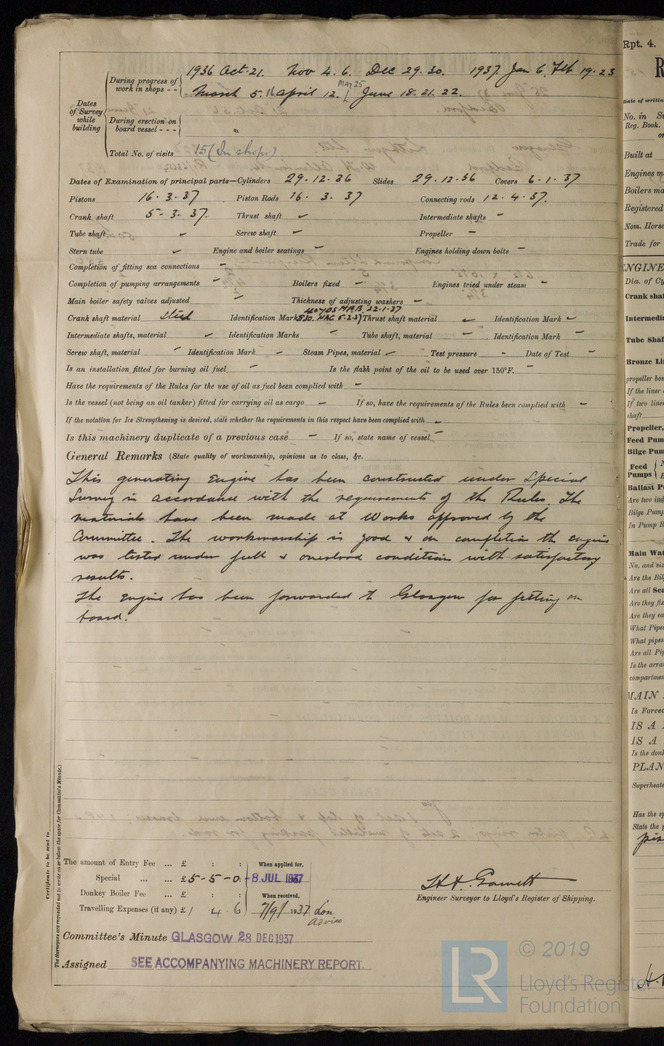 1936 Oct. 21. Nov 4. 6. Dec 29. 30. 1937 Jan 6. Feb 19. 23
Dates of Survey while building
During progress of work in shops - -
March 5. 16 April 12. MAY 25 June 18. 21. 22.
During erection on board vessel - - -
Total No. of visits 15 (In shops)
Dates of Examination of principal parts—Cylinders 29-12-36 Slides 29-12-36 Covers 6-1-37
Pistons 16-3-37 Piston Rods 16-3-37 Connecting rods 12-4-37.
Crank shaft 5-3-37. Thrust shaft Intermediate shafts
Tube shaft Screw shaft Propeller
Stern tube Engine and boiler seatings Engines holding down bolts
Completion of fitting sea connections
Completion of pumping arrangements Boilers fixed Engines tried under steam
Main boiler safety valves adjusted Thickness of adjusting washers
Crank shaft material Steel Identification Mark Thrust shaft material Identification Mark
Intermediate shafts, material Identification Marks Tube shaft, material Identification Mark
Screw shaft, material Identification Mark Steam Pipes, material Test pressure Date of Test
Is an installation fitted for burning oil fuel Is the flash point of the oil to be used over 150°F.
Have the requirements of the Rules for the use of oil as fuel been complied with
Is the vessel (not being an oil tanker) fitted for carrying oil as cargo If so, have the requirements of the Rules been complied with
If the notation for Ice Strengthening is desired, state whether the requirements in this respect have been complied with
Is this machinery duplicate of a previous case If so, state name of vessel
General Remarks (State quality of workmanship, opinions as to class, &c.
This generating Engine has been constructed under Special
Survey in accordance with the requirements of the Rules. The
materials have been made at Works approved by the
Committee. The workmanship is good & on completion the Engine
was tested under full & overload condition with satisfactory
results.
The Engine has been forwarded to Glasgow for fitting on
board.
The amount of Entry Fee ... £ : : When applied for,
Special ... ... £5-5-0 -8 JUL 1937
Donkey Boiler Fee ... £ : : When received,
Travelling Expenses (if any) £1 4. 6 7/9/1937
Engineer Surveyor to Lloyd's Register of Shipping.
Committee's Minute GLASGOW 28 DEC 1937
Assigned SEE ACCOMPANYING MACHINERY REPORT
Certificate to be sent to
The Surveyors are requested not to write on or below the space for Committee's Minute.
Rpt. 4.
© 2019
LR Lloyd's Register
Foundation